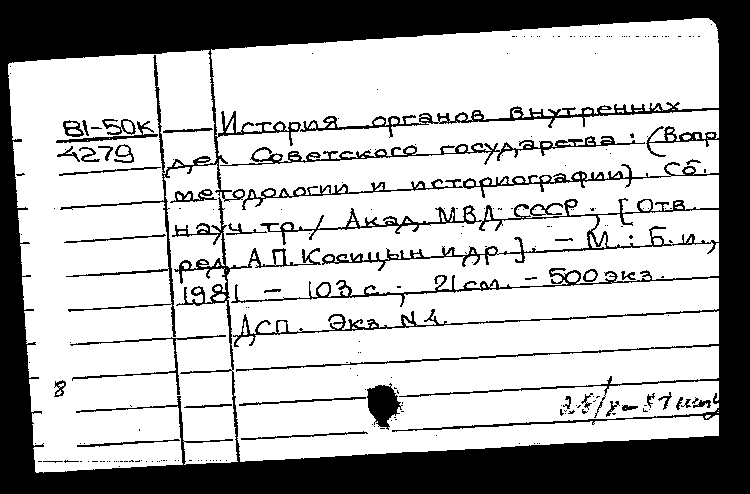 81-50к
4279
История органов внутренних
дел Советского государства: (Вопр
методологии и историографии). Сб.
науч. тр./ Акад. МВД СССР; [Отв.
ред. А.П. Косицын и др.]. - М.: Б.и.,
1981 - 103 с.; 21 см. - 500 экз.
ДСП. Экз. N 4.
8